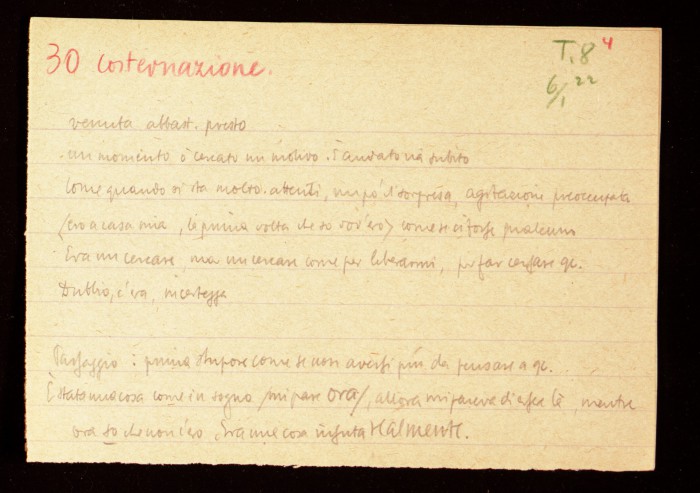 30 costernazione.
T.8 4
6/1 22
venuta abbast. presto
un momento ò cercato un motivo. È andato via subito
come quando si sta molto attenti, un po' di sorpresa, agitazione preoccupata
(ero a casa mia, la prima volta che so dov'ero) come se ci fosse qualcuno
Era un cercare, ma un cercare come per liberarmi, per far cessare qc.
Dubbio, c'era, incertezza
Passaggio: prima stupore come se non avessi più da pensare a qc...
È stata una cosa come in sogno /mi pare ora/, allora mi pareva di esser là, mentre
ora so che non c'ero Era una cosa vissuta realmente.